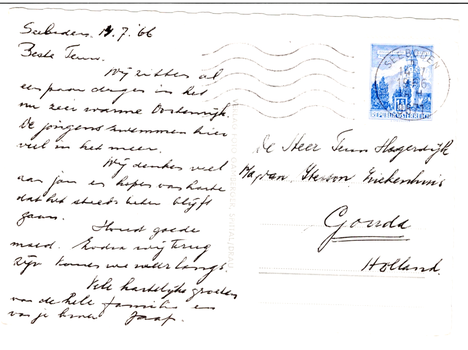 Seeboden. 14.7.'66
Beste Teun.
Wij zitten al
een paar dagen in het
nu zeer warme Oostenrijk.
De jongens zwemmen hier
veel in het meer.
Wij denken veel
aan jou en hopen van harte
dat het steeds beter blijft
gaan.
Houd goede
moed. Zodra wij terug
zijn komen we weer langs.
Vele hartelijke groeten
van de hele familie en
van je broer Jaap.
SEEBODEN
REPUBLIK ÖSTERREICH
De Heer Teun Hagerdijk
van Iterson Ziekenhuis
Gouda
Holland.